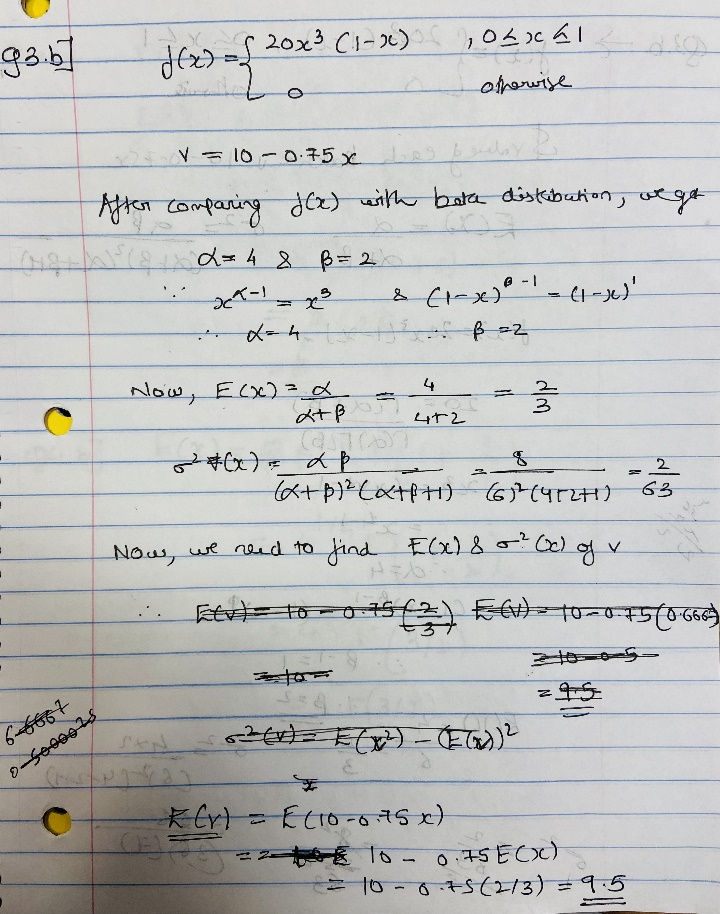 Q3.b] f(x) = { 20x³ (1-x) , 0≤x≤1
0 otherwise
V = 10 - 0.75x
After comparing f(x) with beta distibution, we get
α = 4 & β = 2
∵ x^(α-1) = x³ & (1-x)^(β-1) = (1-x)¹
∴ α = 4 ∴ β = 2
Now, E(x) = α/(α+β) = 4/(4+2) = 2/3
σ²(x) = αβ/((α+β)²(α+β+1)) = 8/((6)²(4+2+1)) = 2/63
Now, we need to find E(x) & σ²(x) of v
∴ E(V) = 10 - 0.75(2/3) E(V) = 10 - 0.75(0.666)
= 10 - = 10 - 0.5
= 9.5
6.6667
0.5000025
σ²(V) = E(x²) - (E(x))²
E(V) = E(10 - 0.75x)
= 10 - 0.75E(x)
= 10 - 0.75(2/3) = 9.5